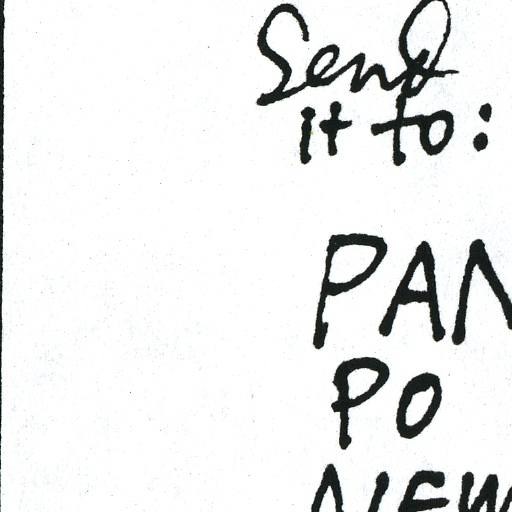 Send
it to:
PAN
PO
NEW